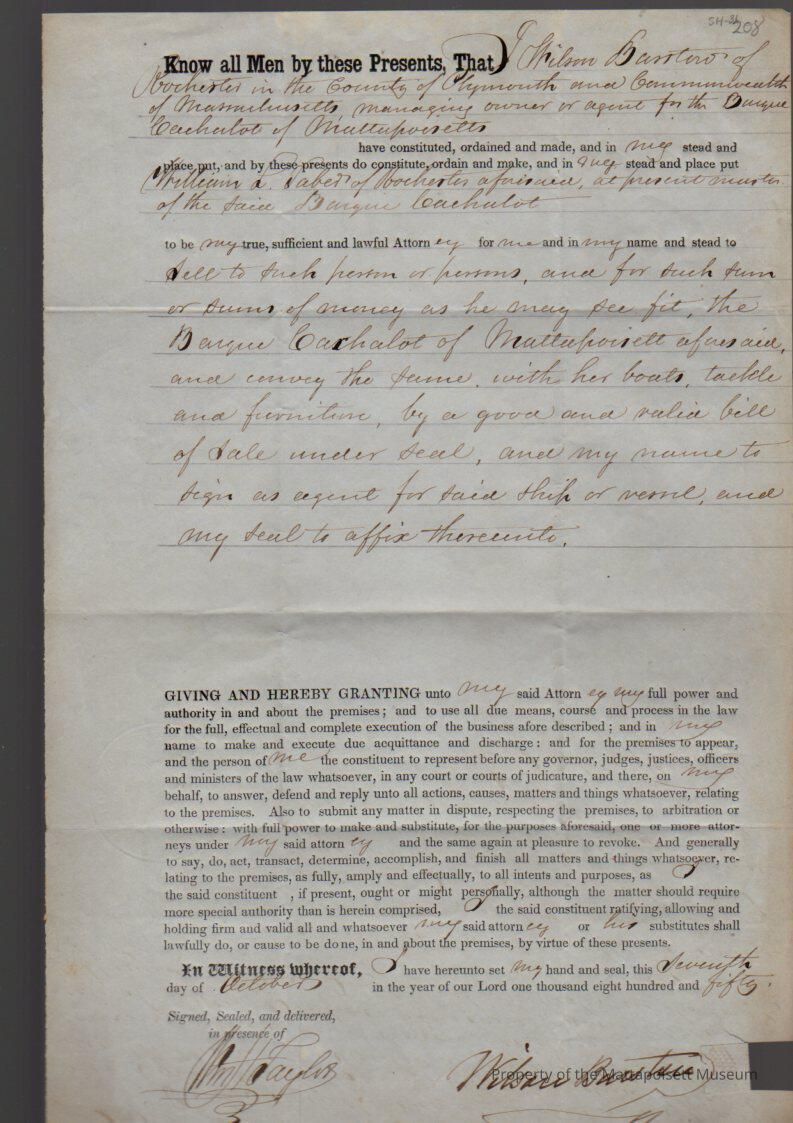 SH-26
208
Know all Men by these Presents, That I Wilson Barstow of
Rochester in the County of Plymouth and Commonwealth
of Massachusetts managing owner or agent for the Barque
Cachalot of Mattapoisetts
have constituted, ordained and made, and in my stead and
place put, and by these presents do constitute, ordain and make, and in my stead and place put
William L. Taber of Rochester aforesaid, at present master
of the said Barque Cachalot
to be my true, sufficient and lawful Attorn ey for me and in my name and stead to
sell to such person or persons, and for such sum
or sums of money as he may see fit, the
Barque Cachalot of Mattapoisett aforesaid,
and convey the same, with her boats, tackle
and furniture, by a good and valid bill
of sale under seal, and my name to
sign as agent for said ship or vessel, and
my seal to affix thereunto.
GIVING AND HEREBY GRANTING unto my said Attorn ey my full power and
authority in and about the premises; and to use all due means, course and process in the law
for the full, effectual and complete execution of the business afore described; and in my
name to make and execute due acquittance and discharge: and for the premises to appear,
and the person of me the constituent to represent before any governor, judges, justices, officers
and ministers of the law whatsoever, in any court or courts of judicature, and there, on my
behalf, to answer, defend and reply unto all actions, causes, matters and things whatsoever, relating
to the premises. Also to submit any matter in dispute, respecting the premises, to arbitration or
otherwise: with full power to make and substitute, for the purposes aforesaid, one or more attor-
neys under my said attorn ey and the same again at pleasure to revoke. And generally
to say, do, act, transact, determine, accomplish, and finish all matters and things whatsoever, re-
lating to the premises, as fully, amply and effectually, to all intents and purposes, as I
the said constituent , if present, ought or might personally, although the matter should require
more special authority than is herein comprised, I the said constituent ratifying, allowing and
holding firm and valid all and whatsoever my said attorn ey or his substitutes shall
lawfully do, or cause to be done, in and about the premises, by virtue of these presents.
In Witness whereof, I have hereunto set my hand and seal, this Seventh
day of October in the year of our Lord one thousand eight hundred and fifty.
Signed, Sealed, and delivered,
in presence of
Taylor
Wilson Barstow
Property of the Mattapoisett Museum